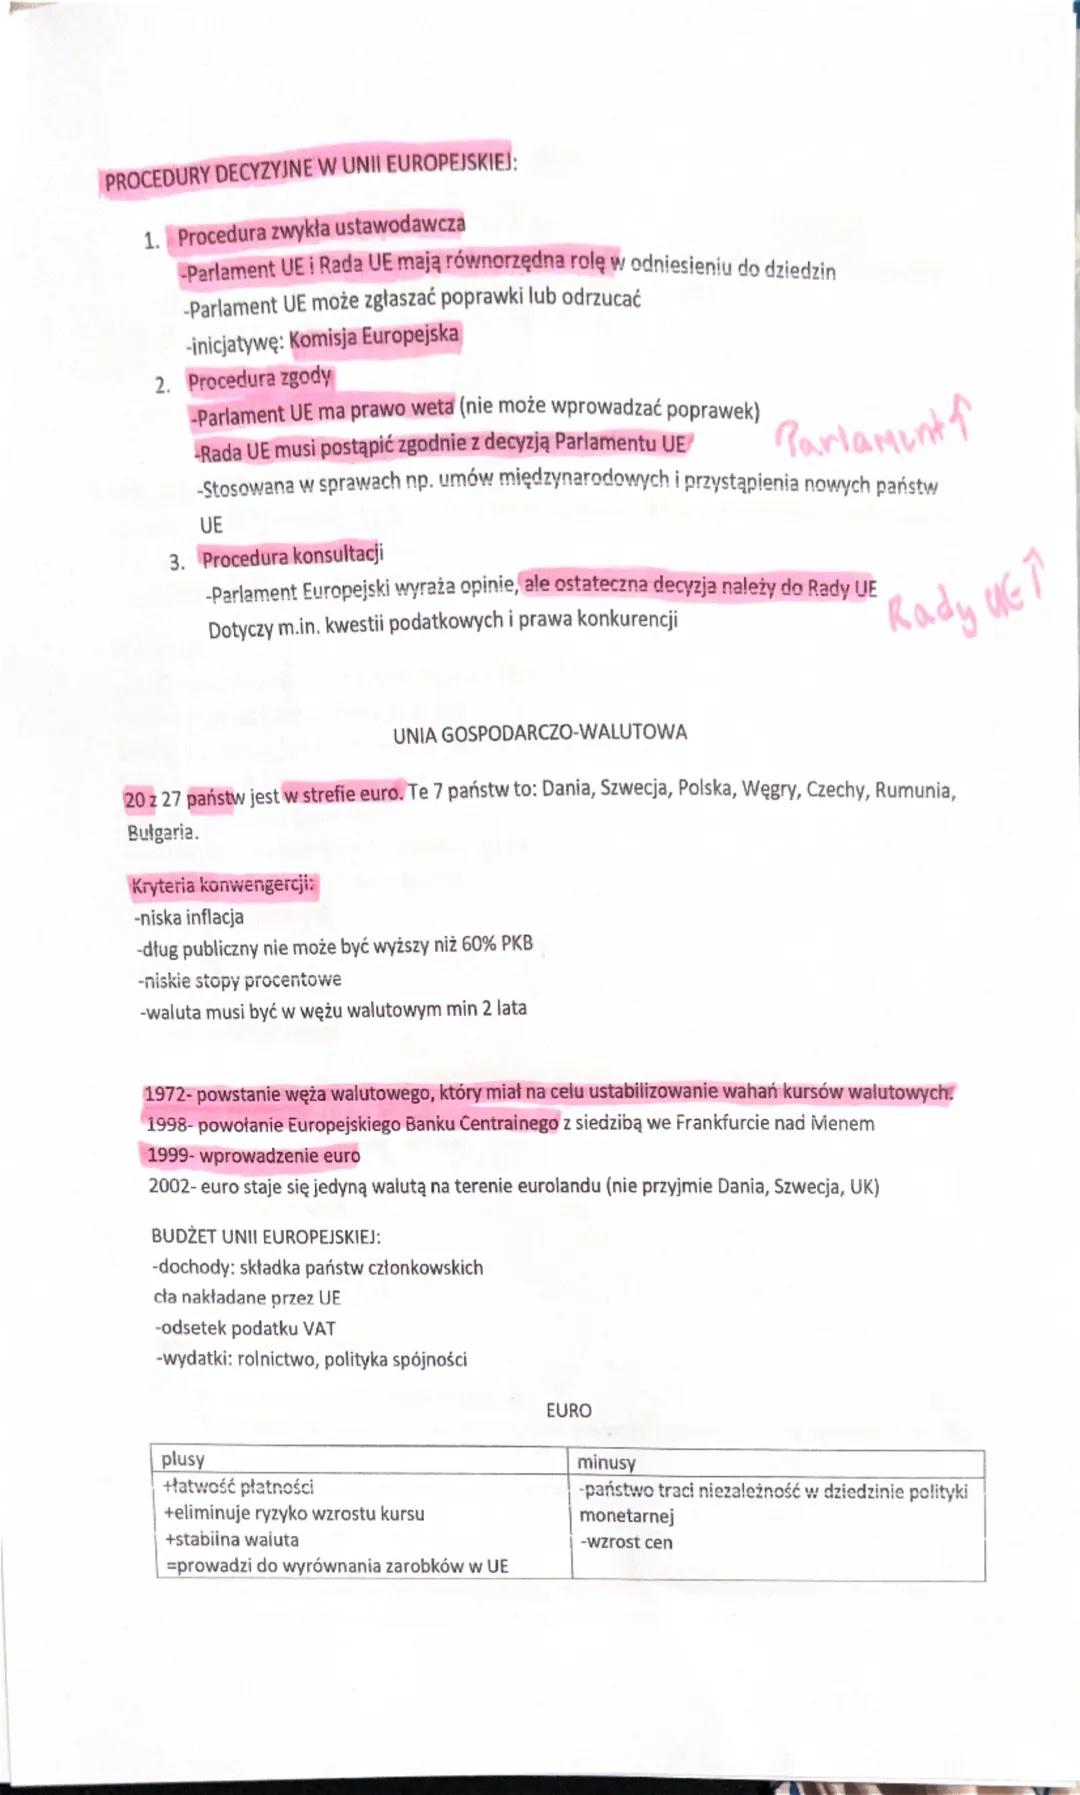 PROCEDURY DECYZYJNE W UNII EUROPEJSKIEJ:
1. Procedura zwykła ustawodawcza
-Parlament UE i Rada UE mają równorzędna rolę w odniesieniu do dziedzin
-Parlament UE może zgłaszać poprawki lub odrzucać
-inicjatywę: Komisja Europejska
2. Procedura zgody
-Parlament UE ma prawo weta (nie może wprowadzać poprawek)
-Rada UE musi postąpić zgodnie z decyzją Parlamentu UE
Parlament ↑
-Stosowana w sprawach np. umów międzynarodowych i przystąpienia nowych państw
UE
3. Procedura konsultacji
-Parlament Europejski wyraża opinie, ale ostateczna decyzja należy do Rady UE
Rady UE ↑
Dotyczy m.in. kwestii podatkowych i prawa konkurencji
UNIA GOSPODARCZO-WALUTOWA
20 z 27 państw jest w strefie euro. Te 7 państw to: Dania, Szwecja, Polska, Węgry, Czechy, Rumunia,
Bułgaria.
Kryteria konwengercji:
-niska inflacja
-dług publiczny nie może być wyższy niż 60% PKB
-niskie stopy procentowe
-waluta musi być w wężu walutowym min 2 lata
1972- powstanie węża walutowego, który miał na celu ustabilizowanie wahań kursów walutowych.
1998- powołanie Europejskiego Banku Centralnego z siedzibą we Frankfurcie nad Menem
1999- wprowadzenie euro
2002- euro staje się jedyną walutą na terenie eurolandu (nie przyjmie Dania, Szwecja, UK)
BUDŻET UNII EUROPEJSKIEJ:
-dochody: składka państw członkowskich
cła nakładane przez UE
-odsetek podatku VAT
-wydatki: rolnictwo, polityka spójności
EURO
plusy
+łatwość płatności
+eliminuje ryzyko wzrostu kursu
+stabilna waluta
=prowadzi do wyrównania zarobków w UE
minusy
-państwo traci niezależność w dziedzinie polityki
monetarnej
-wzrost cen